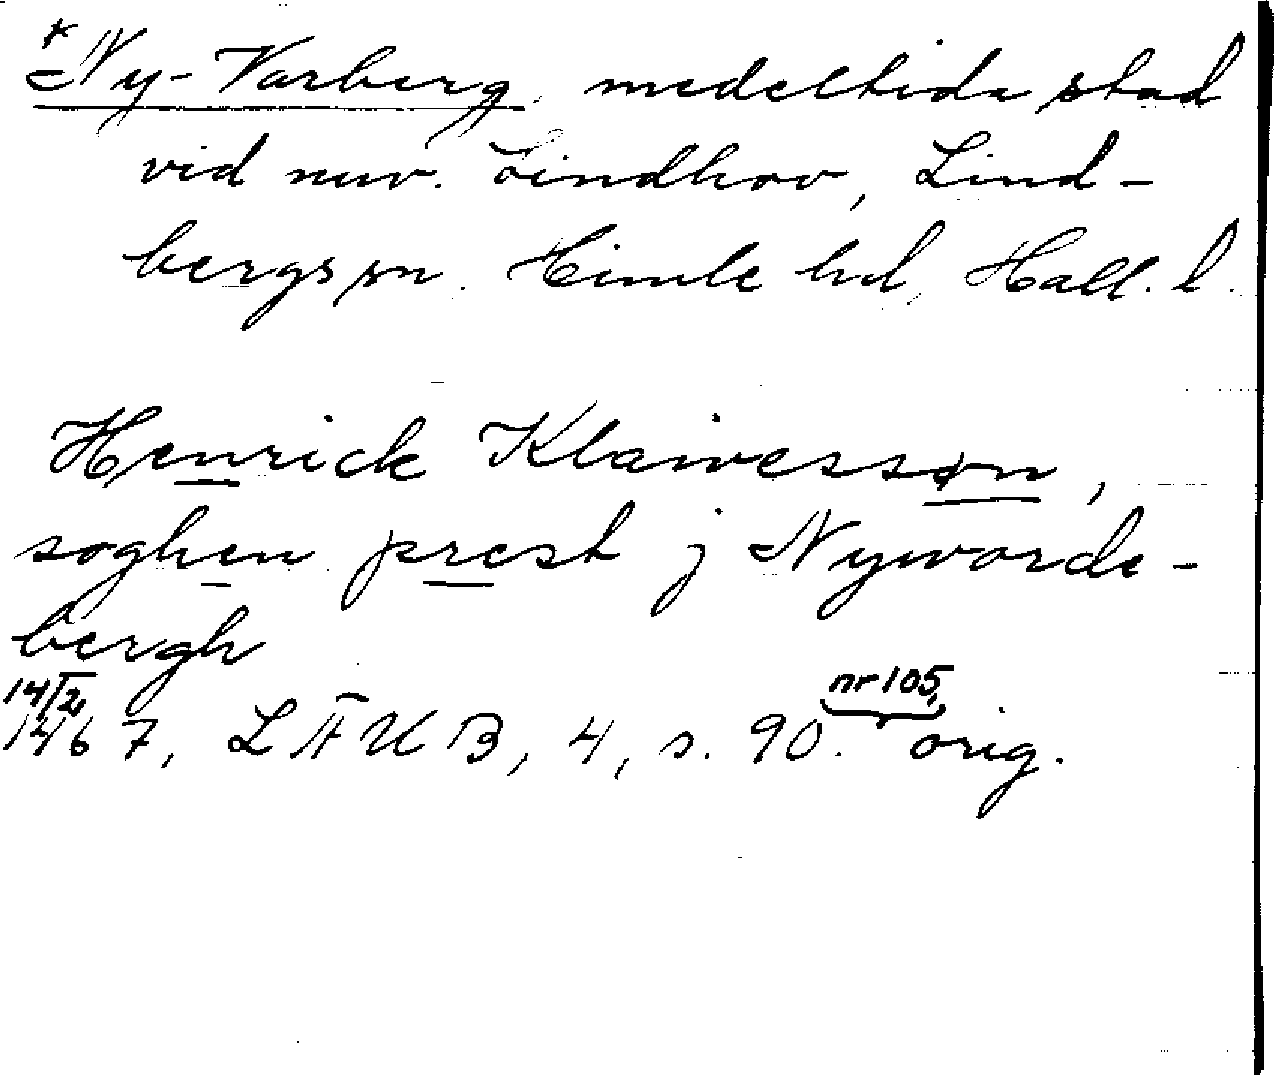 *Ny-Varberg, medeltida stad
vid nuv. Lindhov, Lind-
bergs sn. Himle hd, Hall. l.
Henrick Klawesson,
soghen prest j Nyworde-
bergh
14/2 1467, LÄUB, 4, s. 90. nr 105, orig.